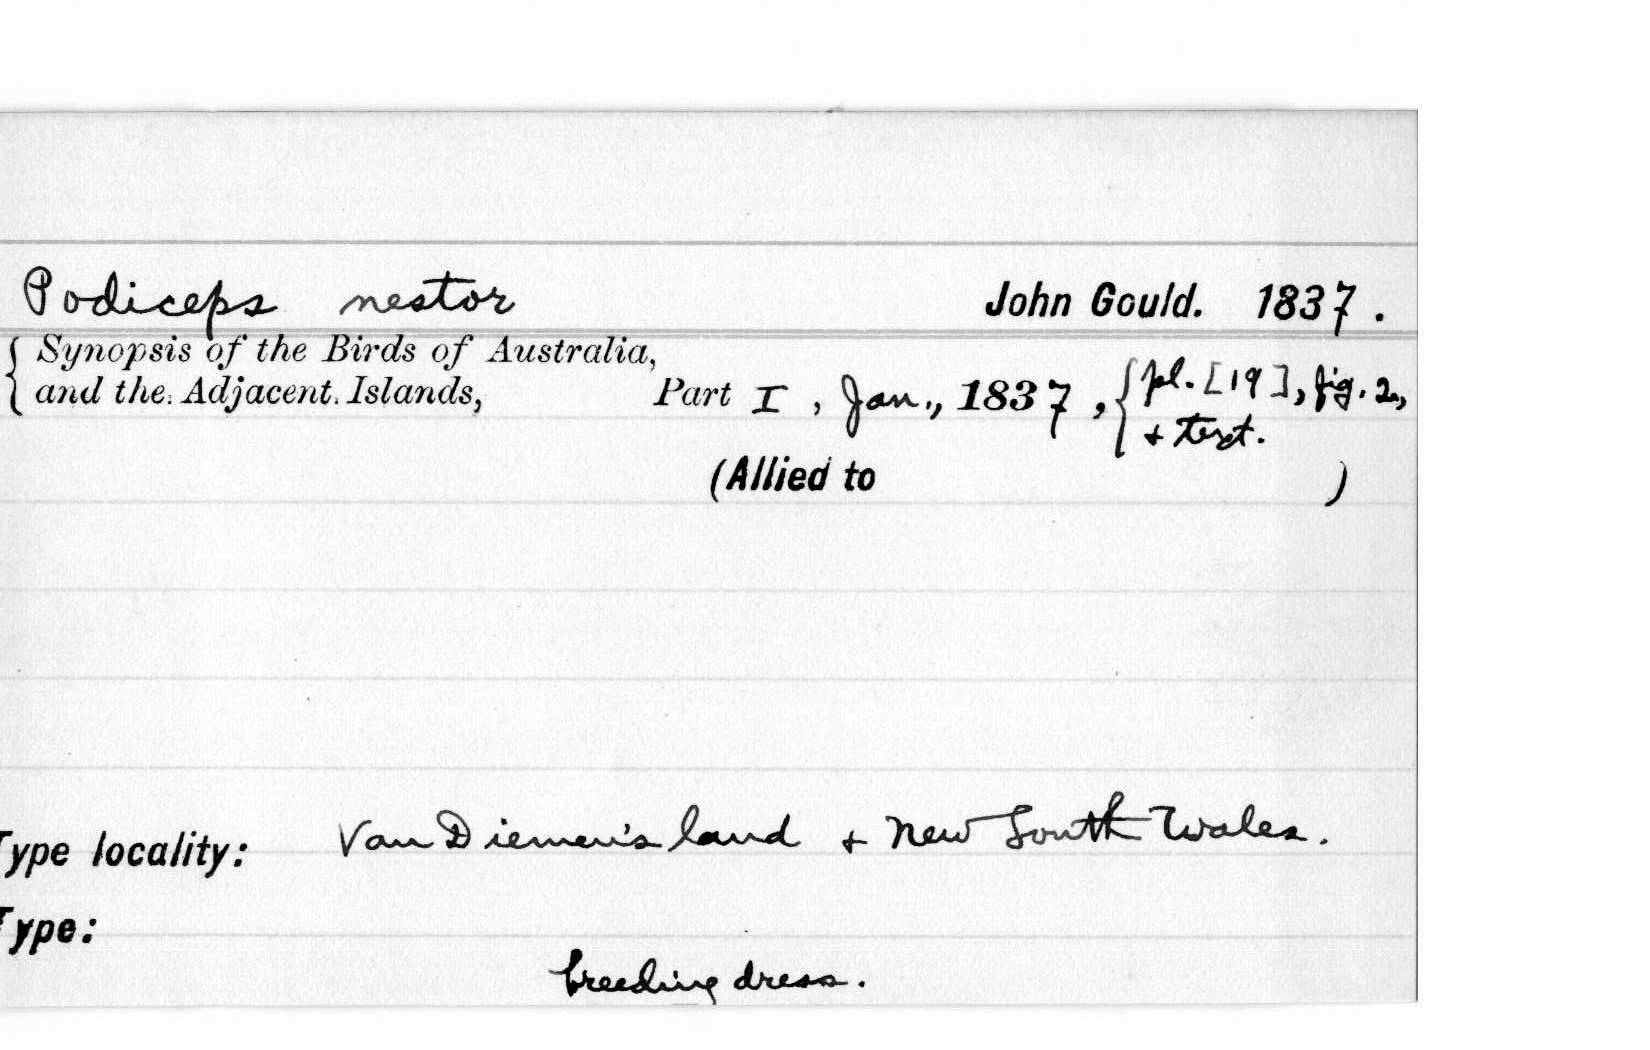 Podiceps nestor John Gould. 1837.
{ Synopsis of the Birds of Australia,
and the Adjacent Islands, Part I, Jan., 1837, { pl. [19], fig. 2,
+ text.
(Allied to )
Type locality: Van Diemen's land + New South Wales.
Type:
breeding dress.